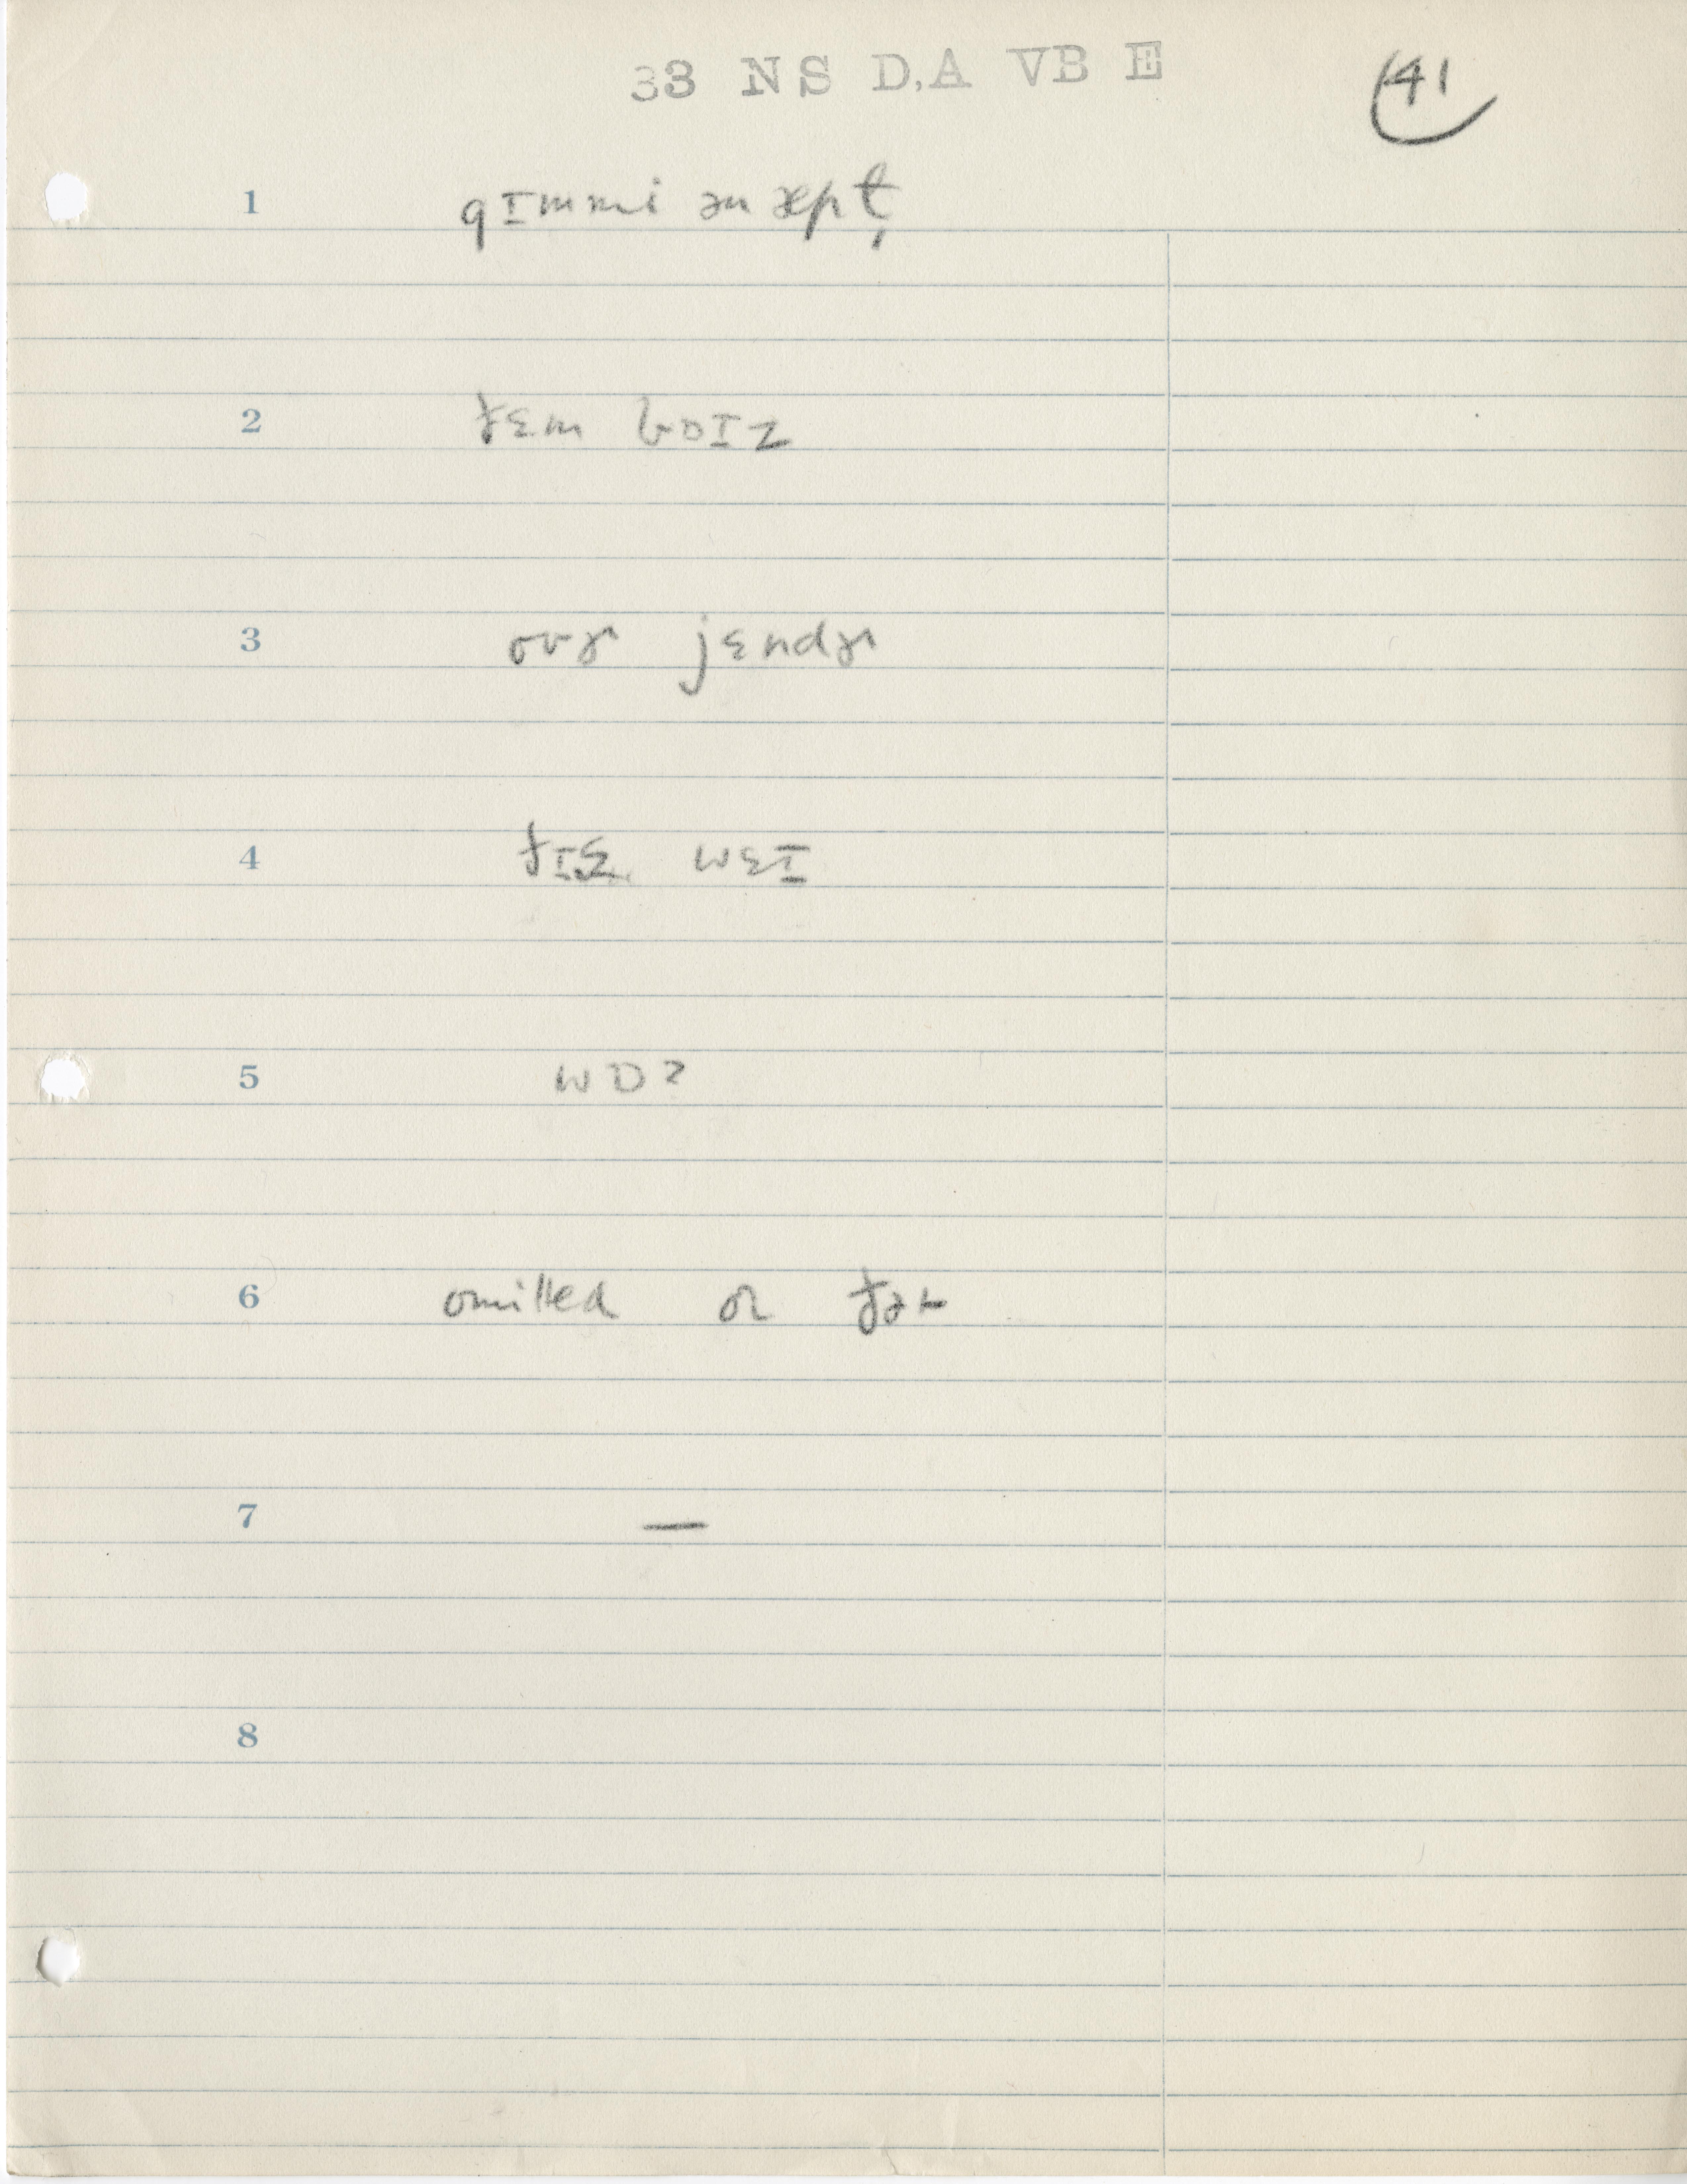 33 NS D,A VB E
141
1 gɪmmi ən æpɫ̩
2 ðɛm bɒɪz
3 ovɚ jɛndɚ
4 ðɪs wɛɪ
5 wɒz
6 omitted or ðət
7 —
8